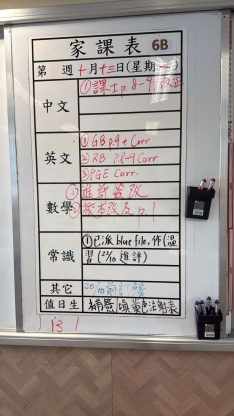 家課表 6B
第 週 十月十三日(星期一)
中文 ①課工p.8-9 改正
英文 ①GB p.9+Corr
②RB P.8-9 Corr
③PGE Corr.
數學 ①進評簽改
②校本改及p.1
常識 ①已派blue file, 作(溫
習(22/10 進評)
其它 20/10
值日生 補費填黃色注射表
13